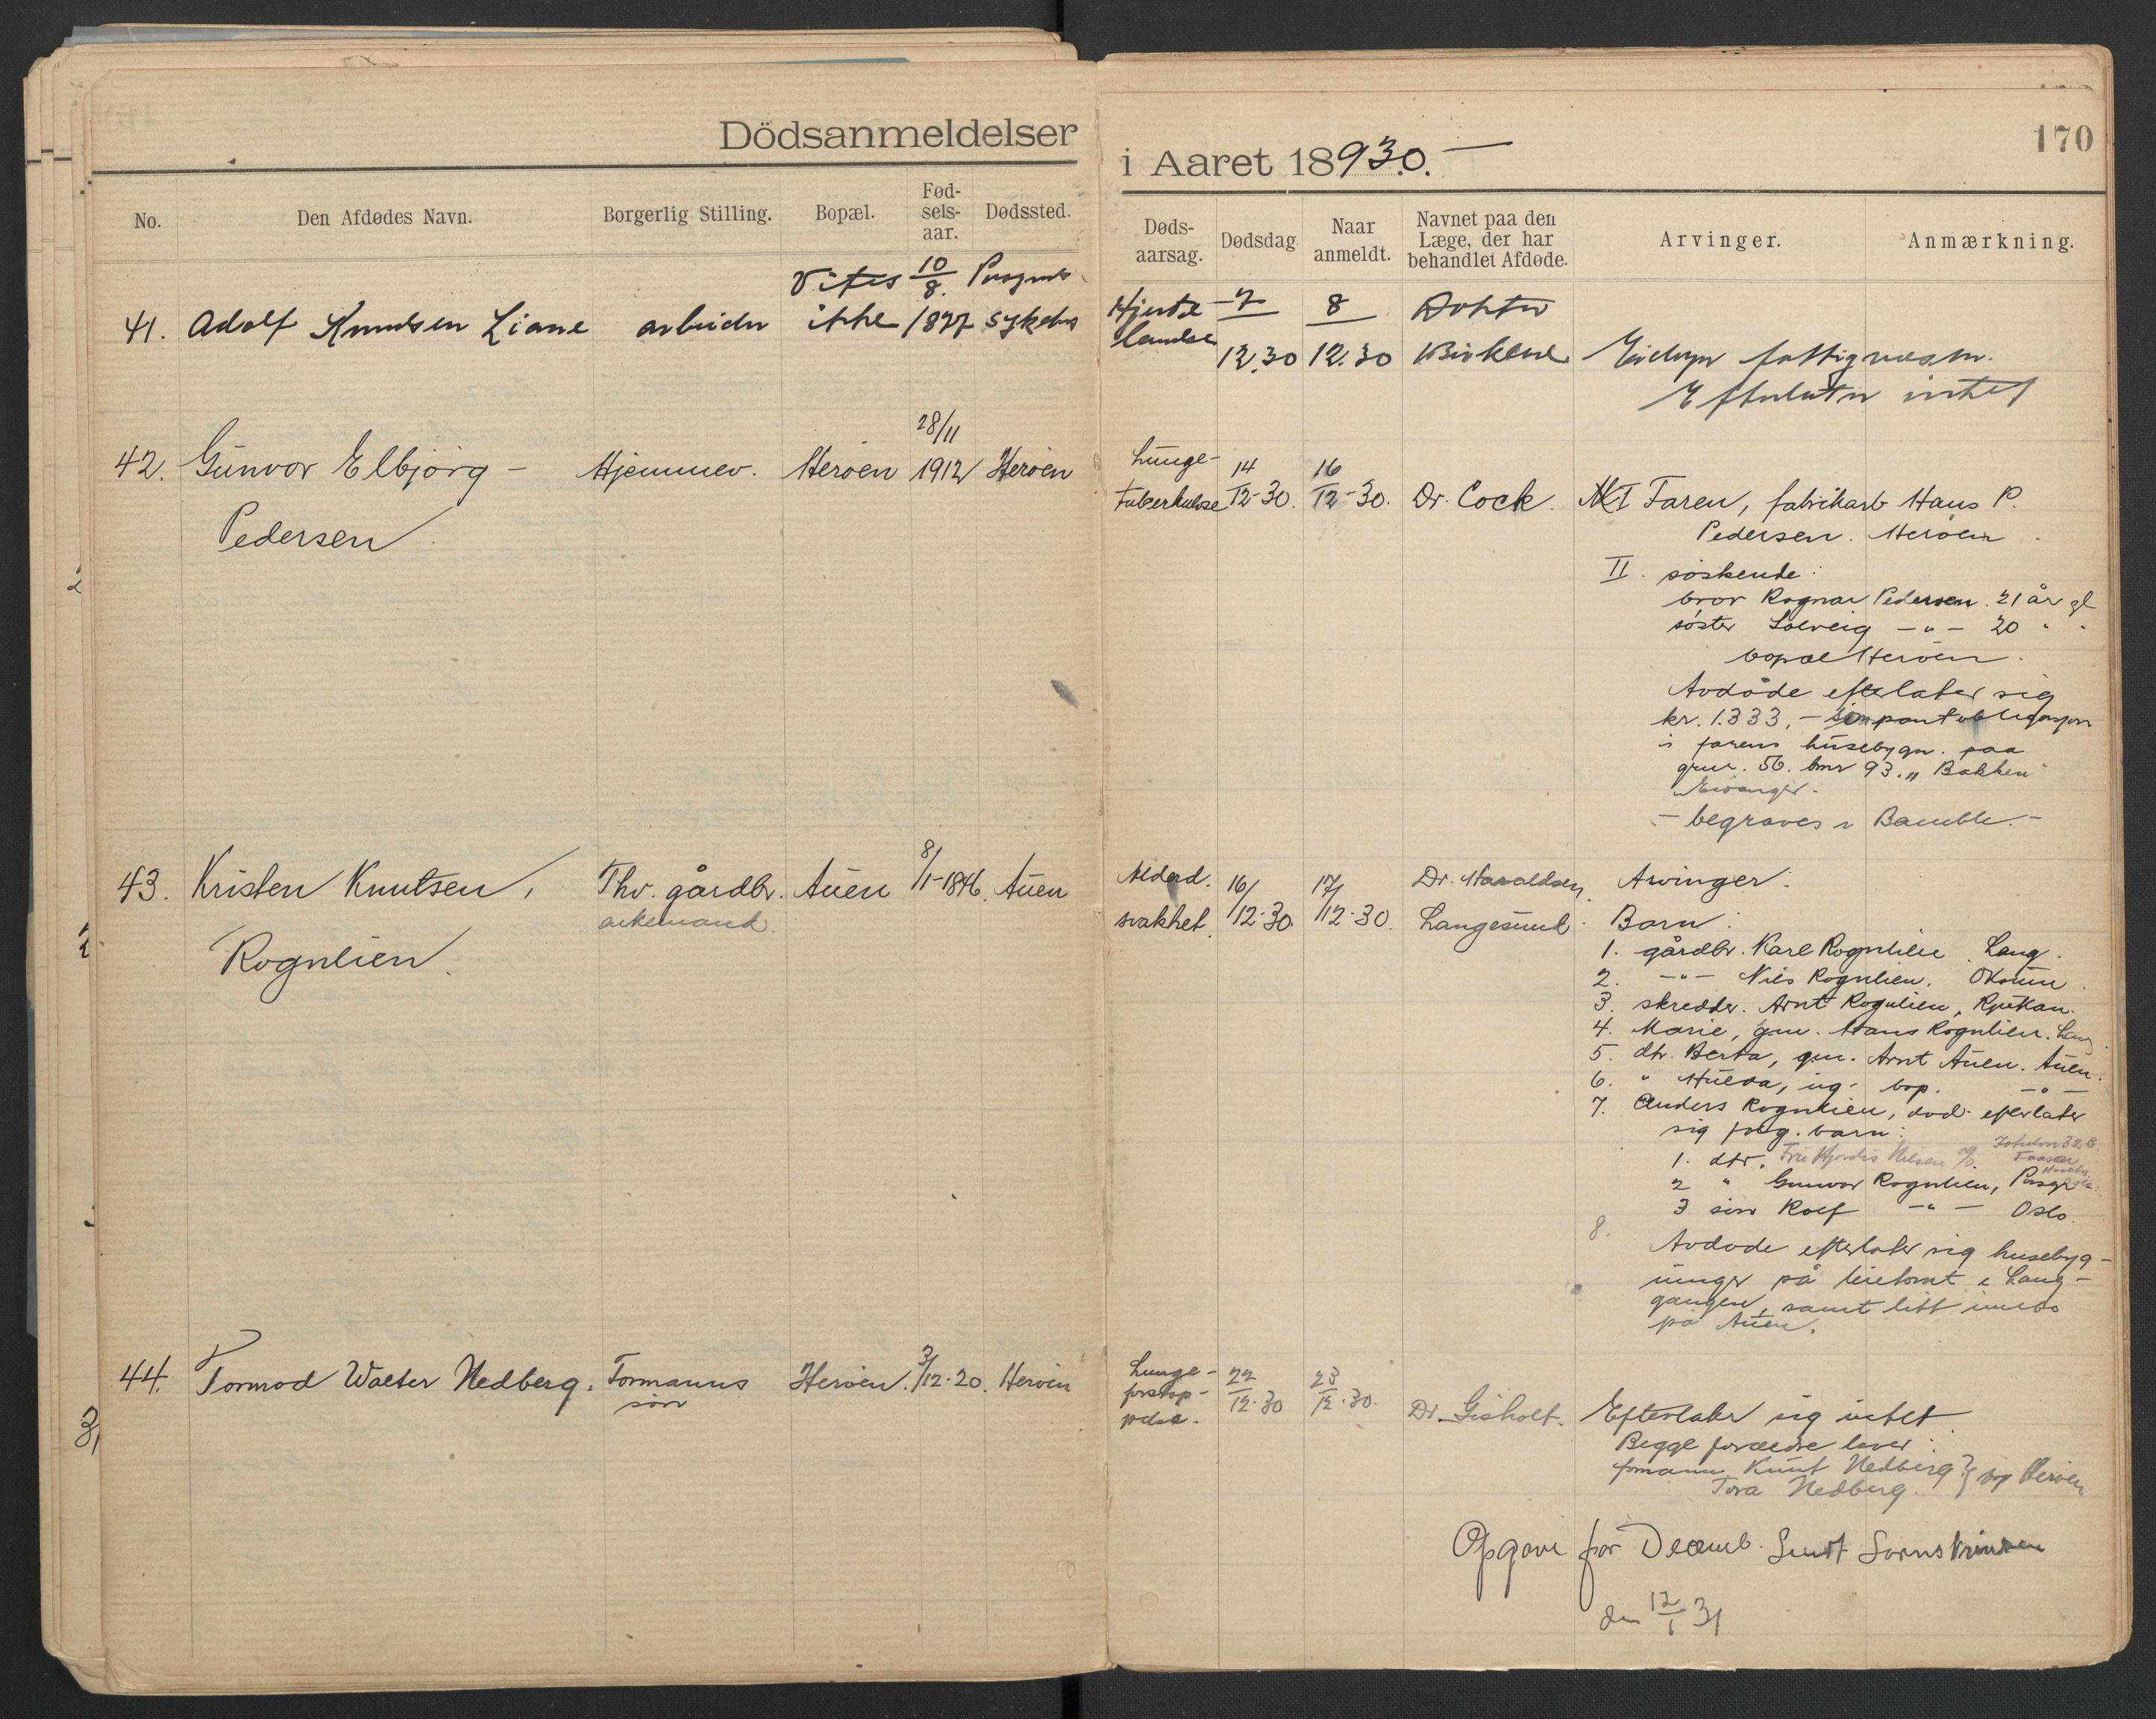 Dödsanmeldelser
i Aaret 1893.0.—
170
No.
Den Afdødes Navn.
Borgerlig Stilling.
Bopæl.
Fød-
sels-
aar.
Dødssted.
Døds-
aarsag.
Dødsdag
Naar
anmeldt.
Navnet paa den
Læge, der har
behandlet Afdøde.
Arvinger.
Anmærkning.
Vites 10/8. Porsgrunds
41. Adolf Knudsen Liane arbeider ikke 1877 sykehus
Hjerte- 7 8 Doktor
lamelse 12.30 12.30 fattigvæsn.
Efterlater intet
28/11
42. Gunvor Elbjörg – Hjemmev. Heröen 1912 Heröen
Pedersen.
Lunge- 14 16
tuberkulose 12-30. 12-30. Dr. Cock. I Faren, fabrikarb Hans P.
Pedersen. Heröen.
II. söskende:
bror Ragnar Pedersen. 21 år gl
söster Solveig –"– 20 " "
bopæl Heröen.
Avdöde efterlater sig
kr. 1.333,– pantobligasjon
i farens husebygn. paa
gnr. 56. bnr 93. „Bakken"
Eivanger.
– begraves i Bamble. –
43. Kristen Knutsen, Thv. gårdbr. Auen 8/1-1846. Auen
enkemand.
Rognlien.
Alderd. 16/ 17/ Dr. Haraldsen, Arvinger:
svakhet. 12-30. 12-30. Langesund. Barn:
1. gårdbr. Karl Rognlien. Lang.
2. –"– Nils Rognlien.
3. skredder. Arnt Rognlien, Rjukan.
4. Marie, gm. Hans Rognlien. Lang.
5. dtr. Berta, gm. Arnt Auen. Auen.
6. " Hulda, ug. bop. –"–
7. Anders Rognlien, död. efterlater
sig fölg. barn:
1. dtr. Fru Hjördis Nilsen
2 " Gunvor Rognlien, Porsgr
3 sön Rolf –"– Oslo.
8.
Avdöde efterlater sig husebyg-
ninger på leietomt i Lang-
gangen, samt litt innbo
på Auen.
44. Tormod Walter Nedberg. Formanns Heröen. 3/12-20. Heröen
sön
Lunge- 22 23
forstop- 12-30 12-30.
pelse. Dr. Gisholt. Efterlater sig intet
Begge forældre lever:
formann Knut Nedberg } bop Heröen
Tora Nedberg.
Opgave for Decemb. Sendt Sorenskriveren
den 12/1 31